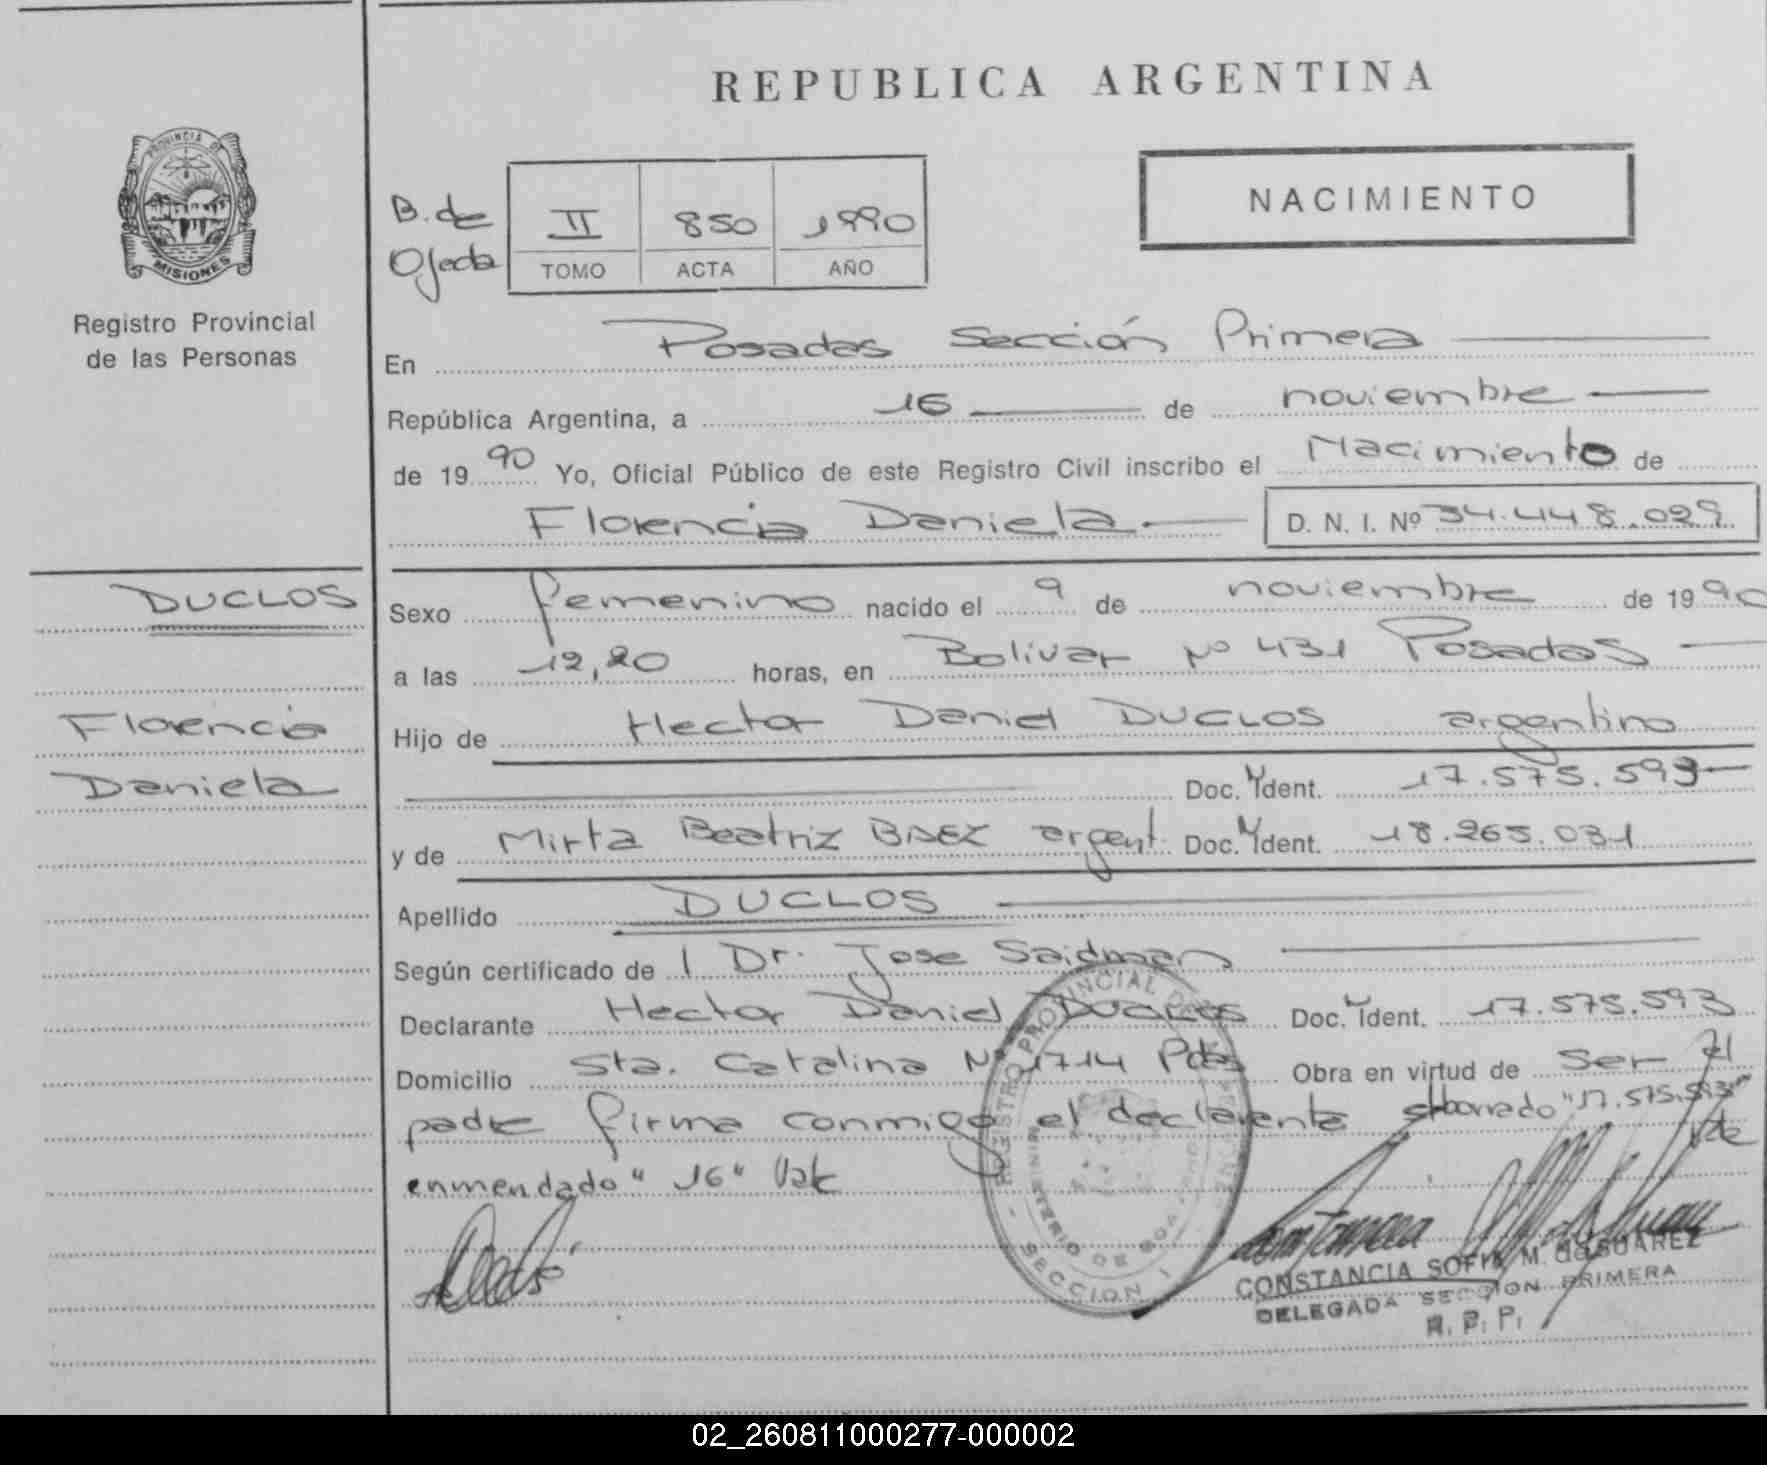 REPUBLICA ARGENTINA
PROVINCIA DE
MISIONES
Registro Provincial
de las Personas
B. de
Ojeda
II 850 1990
TOMO ACTA AÑO
NACIMIENTO
En Posadas Sección Primera
República Argentina, a 16 de noviembre
de 1990 Yo, Oficial Público de este Registro Civil inscribo el Nacimiento de
Florencia Daniela D. N. I. Nº 34.448.029
DUCLOS
Florencia
Daniela
Sexo femenino nacido el 9 de noviembre de 1990
a las 12,20 horas, en Bolivar Nº 431 Posadas
Hijo de Hector Daniel DUCLOS argentino
Doc. Ident. 17.575.593
y de Mirta Beatriz BAEZ argent. Doc. Ident. 18.265.031
Apellido DUCLOS
Según certificado de l Dr. Jose Saidman
Declarante Hector Daniel Duclos Doc. Ident. 17.575.593
Domicilio Sta. Catalina Nº 1714 Pdas Obra en virtud de Ser el
padre firma conmigo el declarante s/borrado "17.575.593" Vale
enmendado "16" Vale
REGISTRO PROVINCIAL DE LAS PERSONAS
MINISTERIO DE GOBIERNO
SECCION I
CONSTANCIA SOFIA M. de SUAREZ
DELEGADA SECCION PRIMERA
R. P. P.
02_260811000277-000002